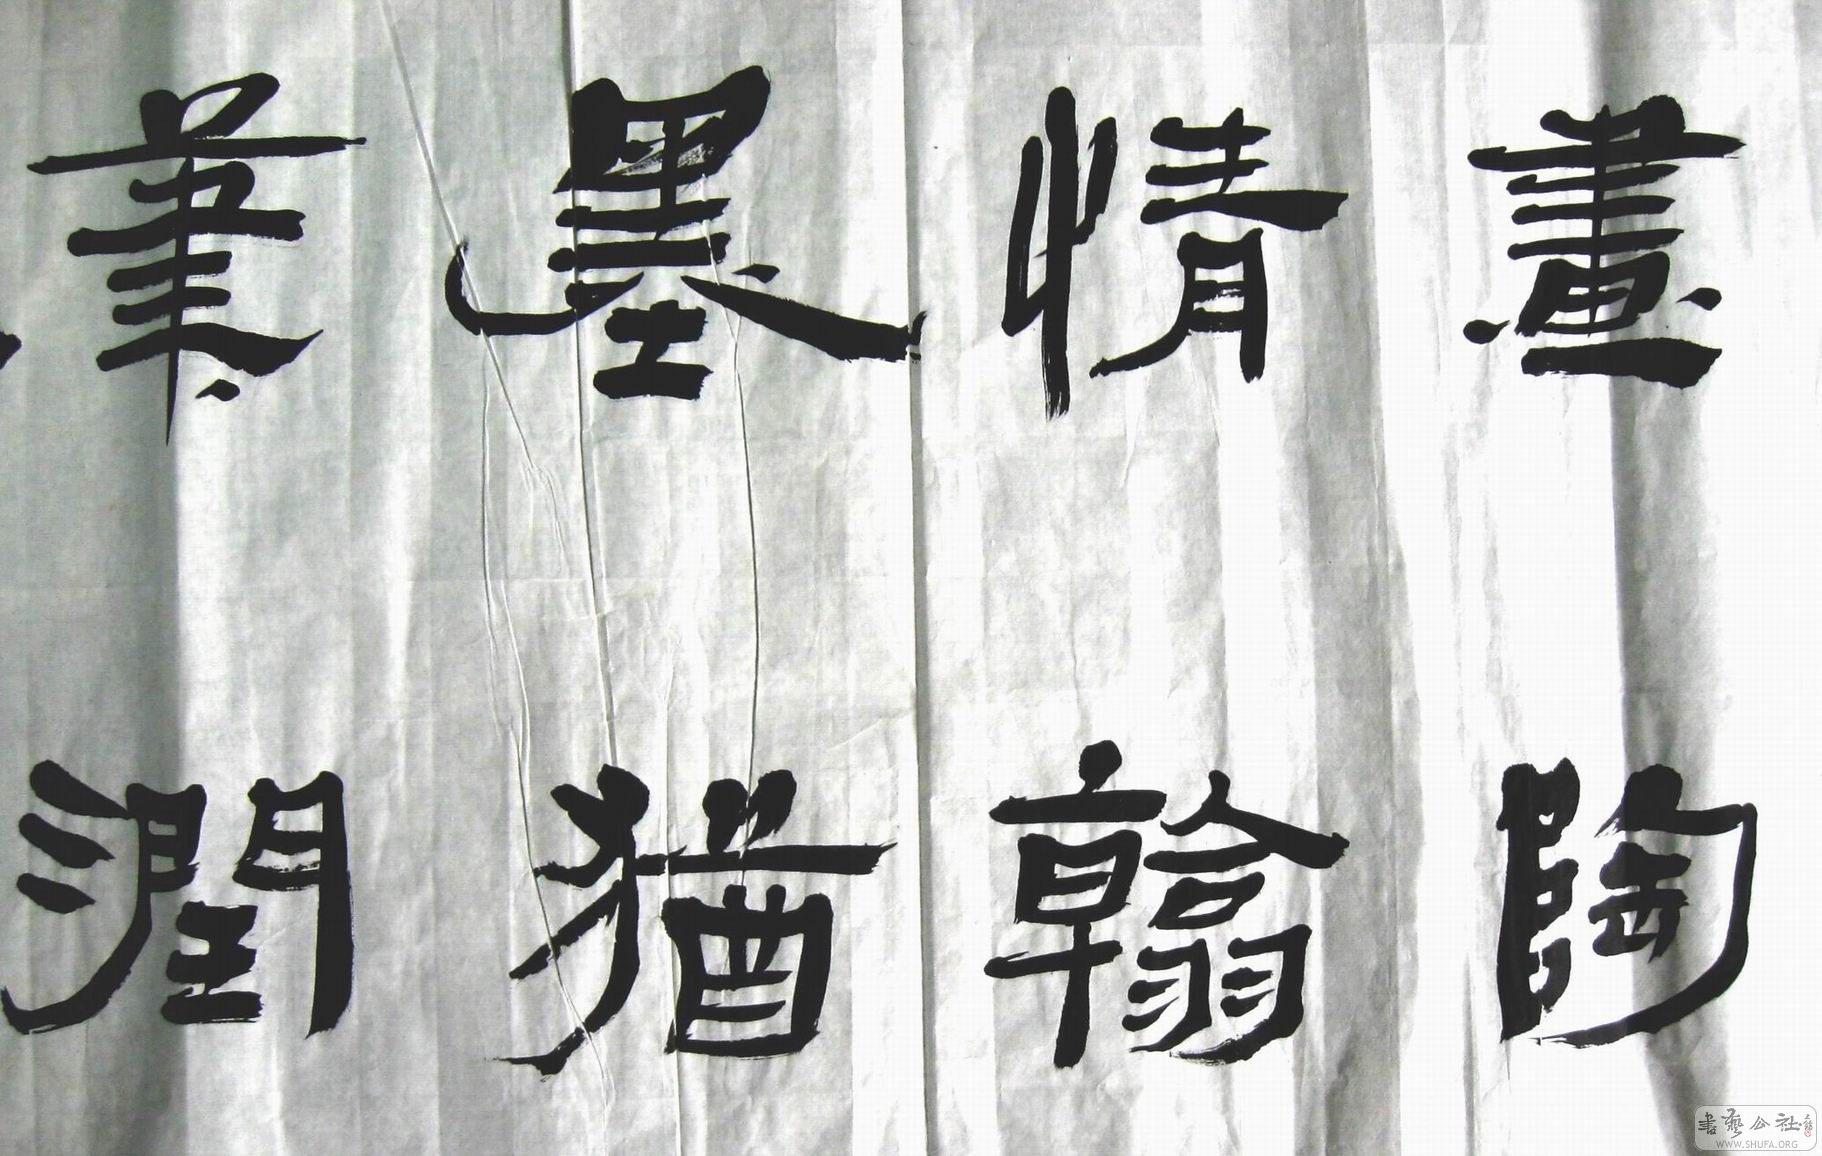 畫陶
情翰
墨猶
筆潤
書藝公社
WWW.SHUFA.ORG